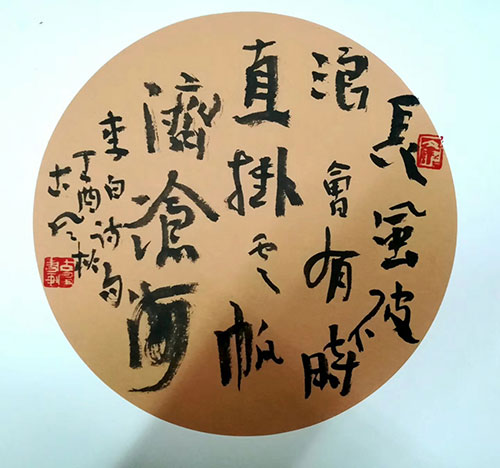 長風破
浪會有時
直掛云帆
濟滄海
李白诗句
丁酉秋